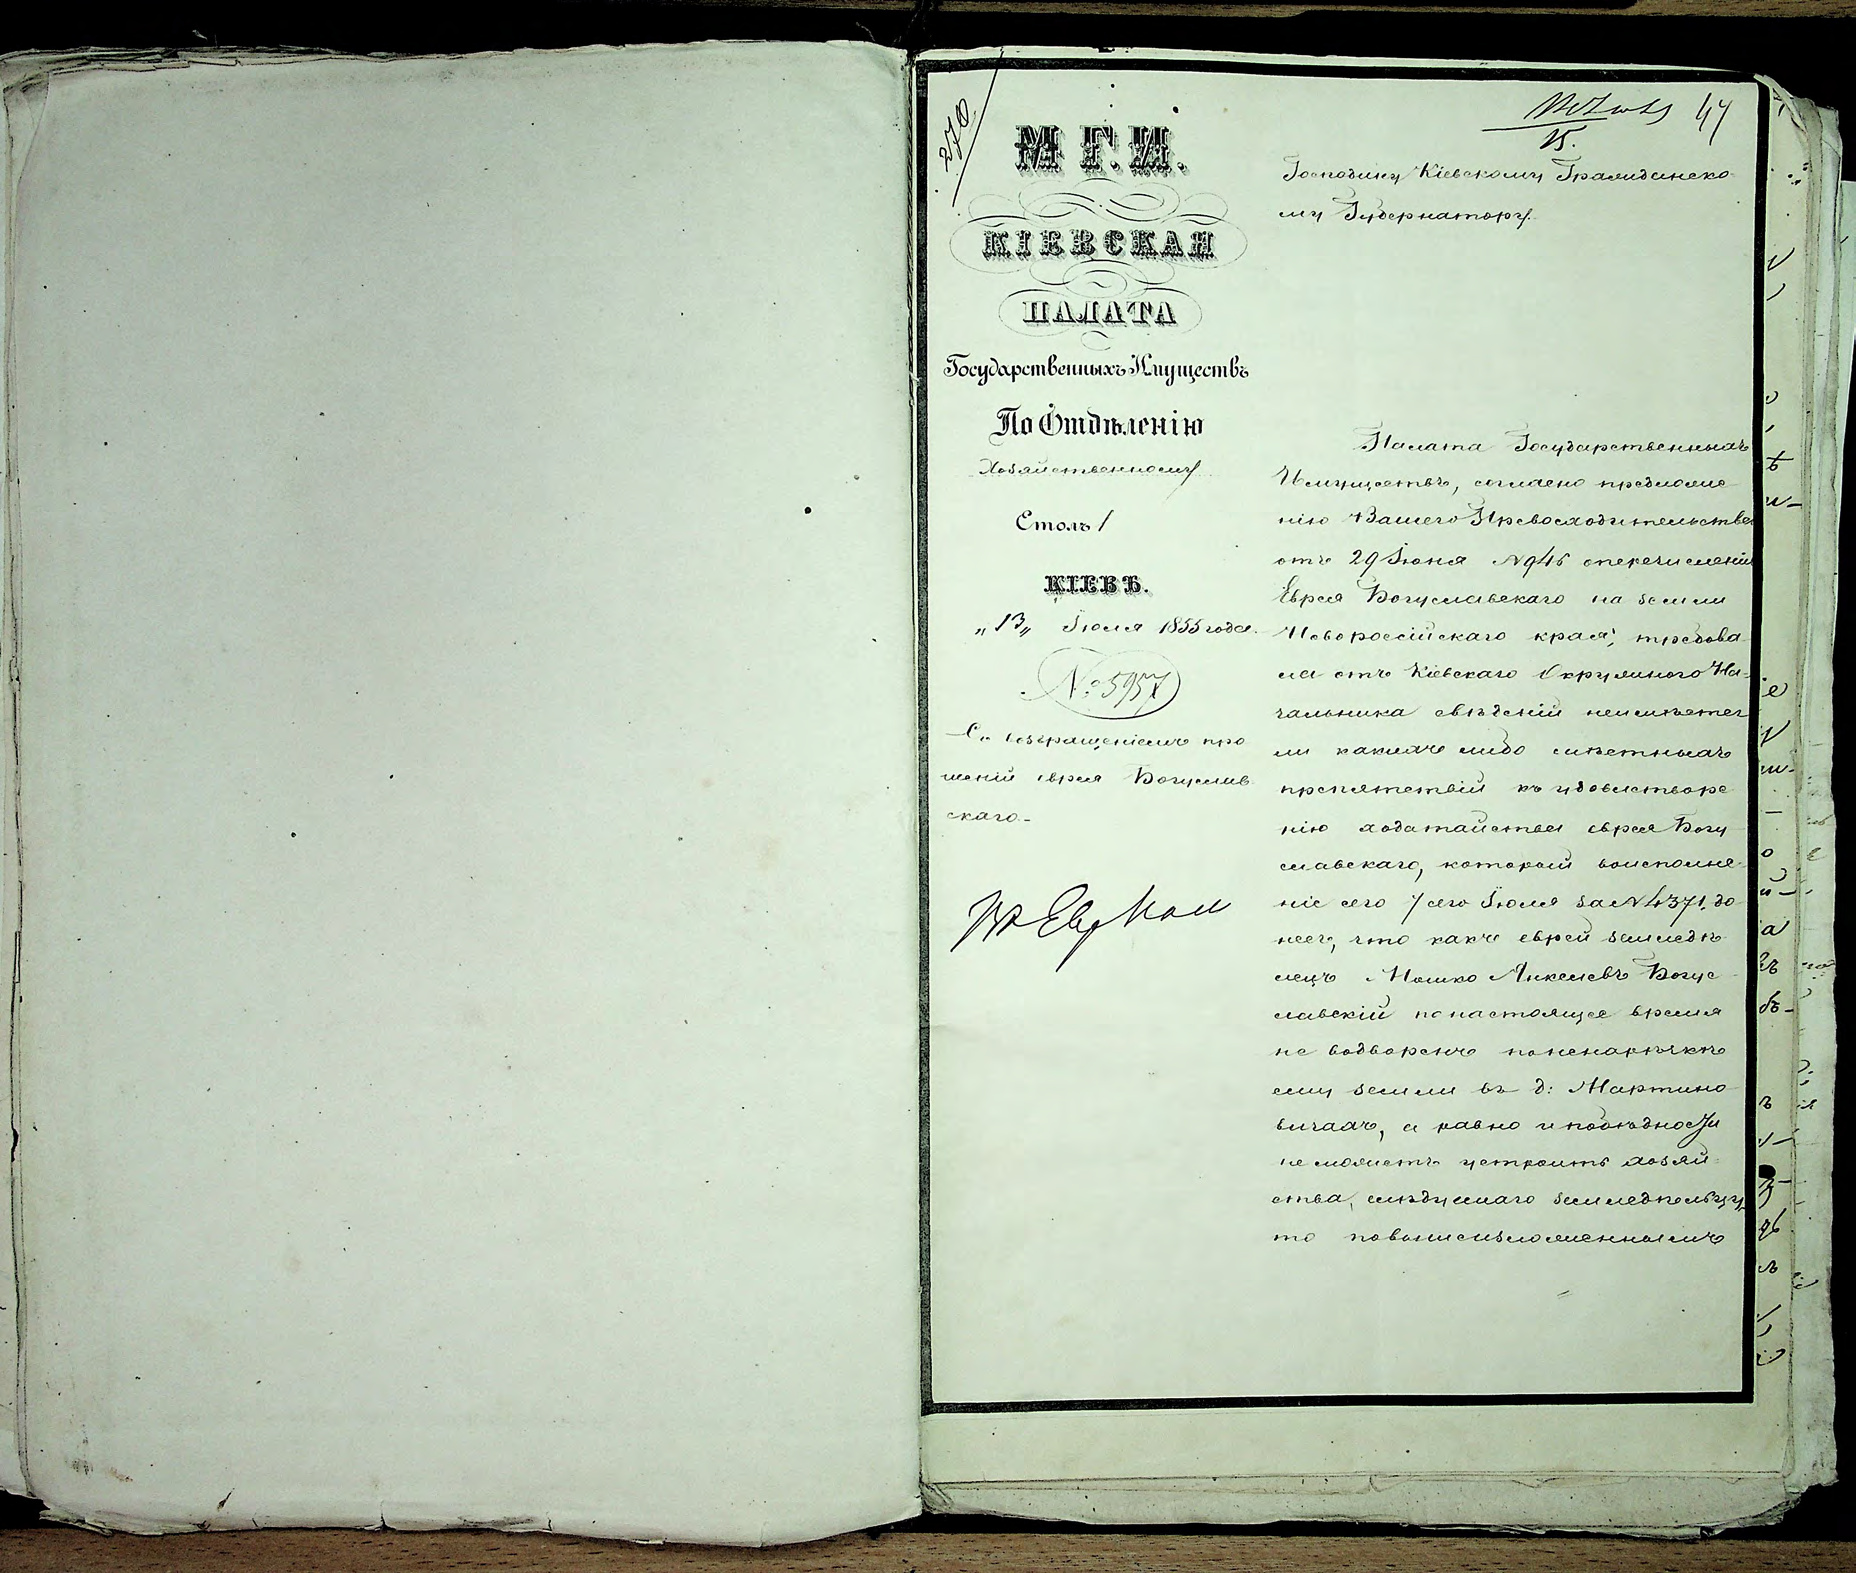 270
М Г. И.
КІЕВСКАЯ
ПАЛАТА
Государственныхъ Имуществъ
По Отдѣленію
Хозяйственному
Столъ 1
КІЕВЪ.
„13„ Іюля 1855 года.
№ 5957
Съ возвращеніемъ про
шеній еврея Богуслав
скаго.-
47
15.
Господину Кіевскому Гражданско
му Губернатору.
Палата Государственныхъ
Имуществъ, согласно предложе
нію Вашего Превосходительства
отъ 29 Іюня №946 оперечисленіи
Еврея Богуславскаго на земли
Новороссійскаго края, требова
ла отъ Кіевскаго Окружного На-
чальника свѣденій неимѣетсѧ
ли какихъ либо мѣстныхъ
препятствій къ удовлетворе
нію ходатайства еврея Богу
славскаго, который воисполне-
ніе сего 7 сего Іюля за №4371, до
несъ, что какъ еврей земледѣ
лецъ Мошко Янкелевъ Богус
лавскій понастоящее время
не водворенъ напенарѣзке
ему земли въ д: Мартино
вичахъ, а равно и побѣдности
неможетъ устроить хозяй
ства, слѣдуемаго земледѣльцу,
то повышеизложеннымъ